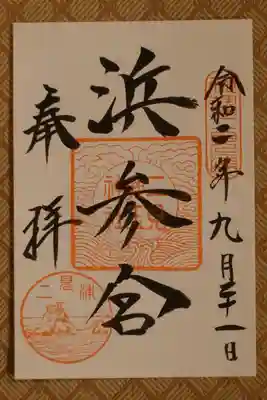 令和二年九月二十一日
浜参宮
奉拝
二見浦